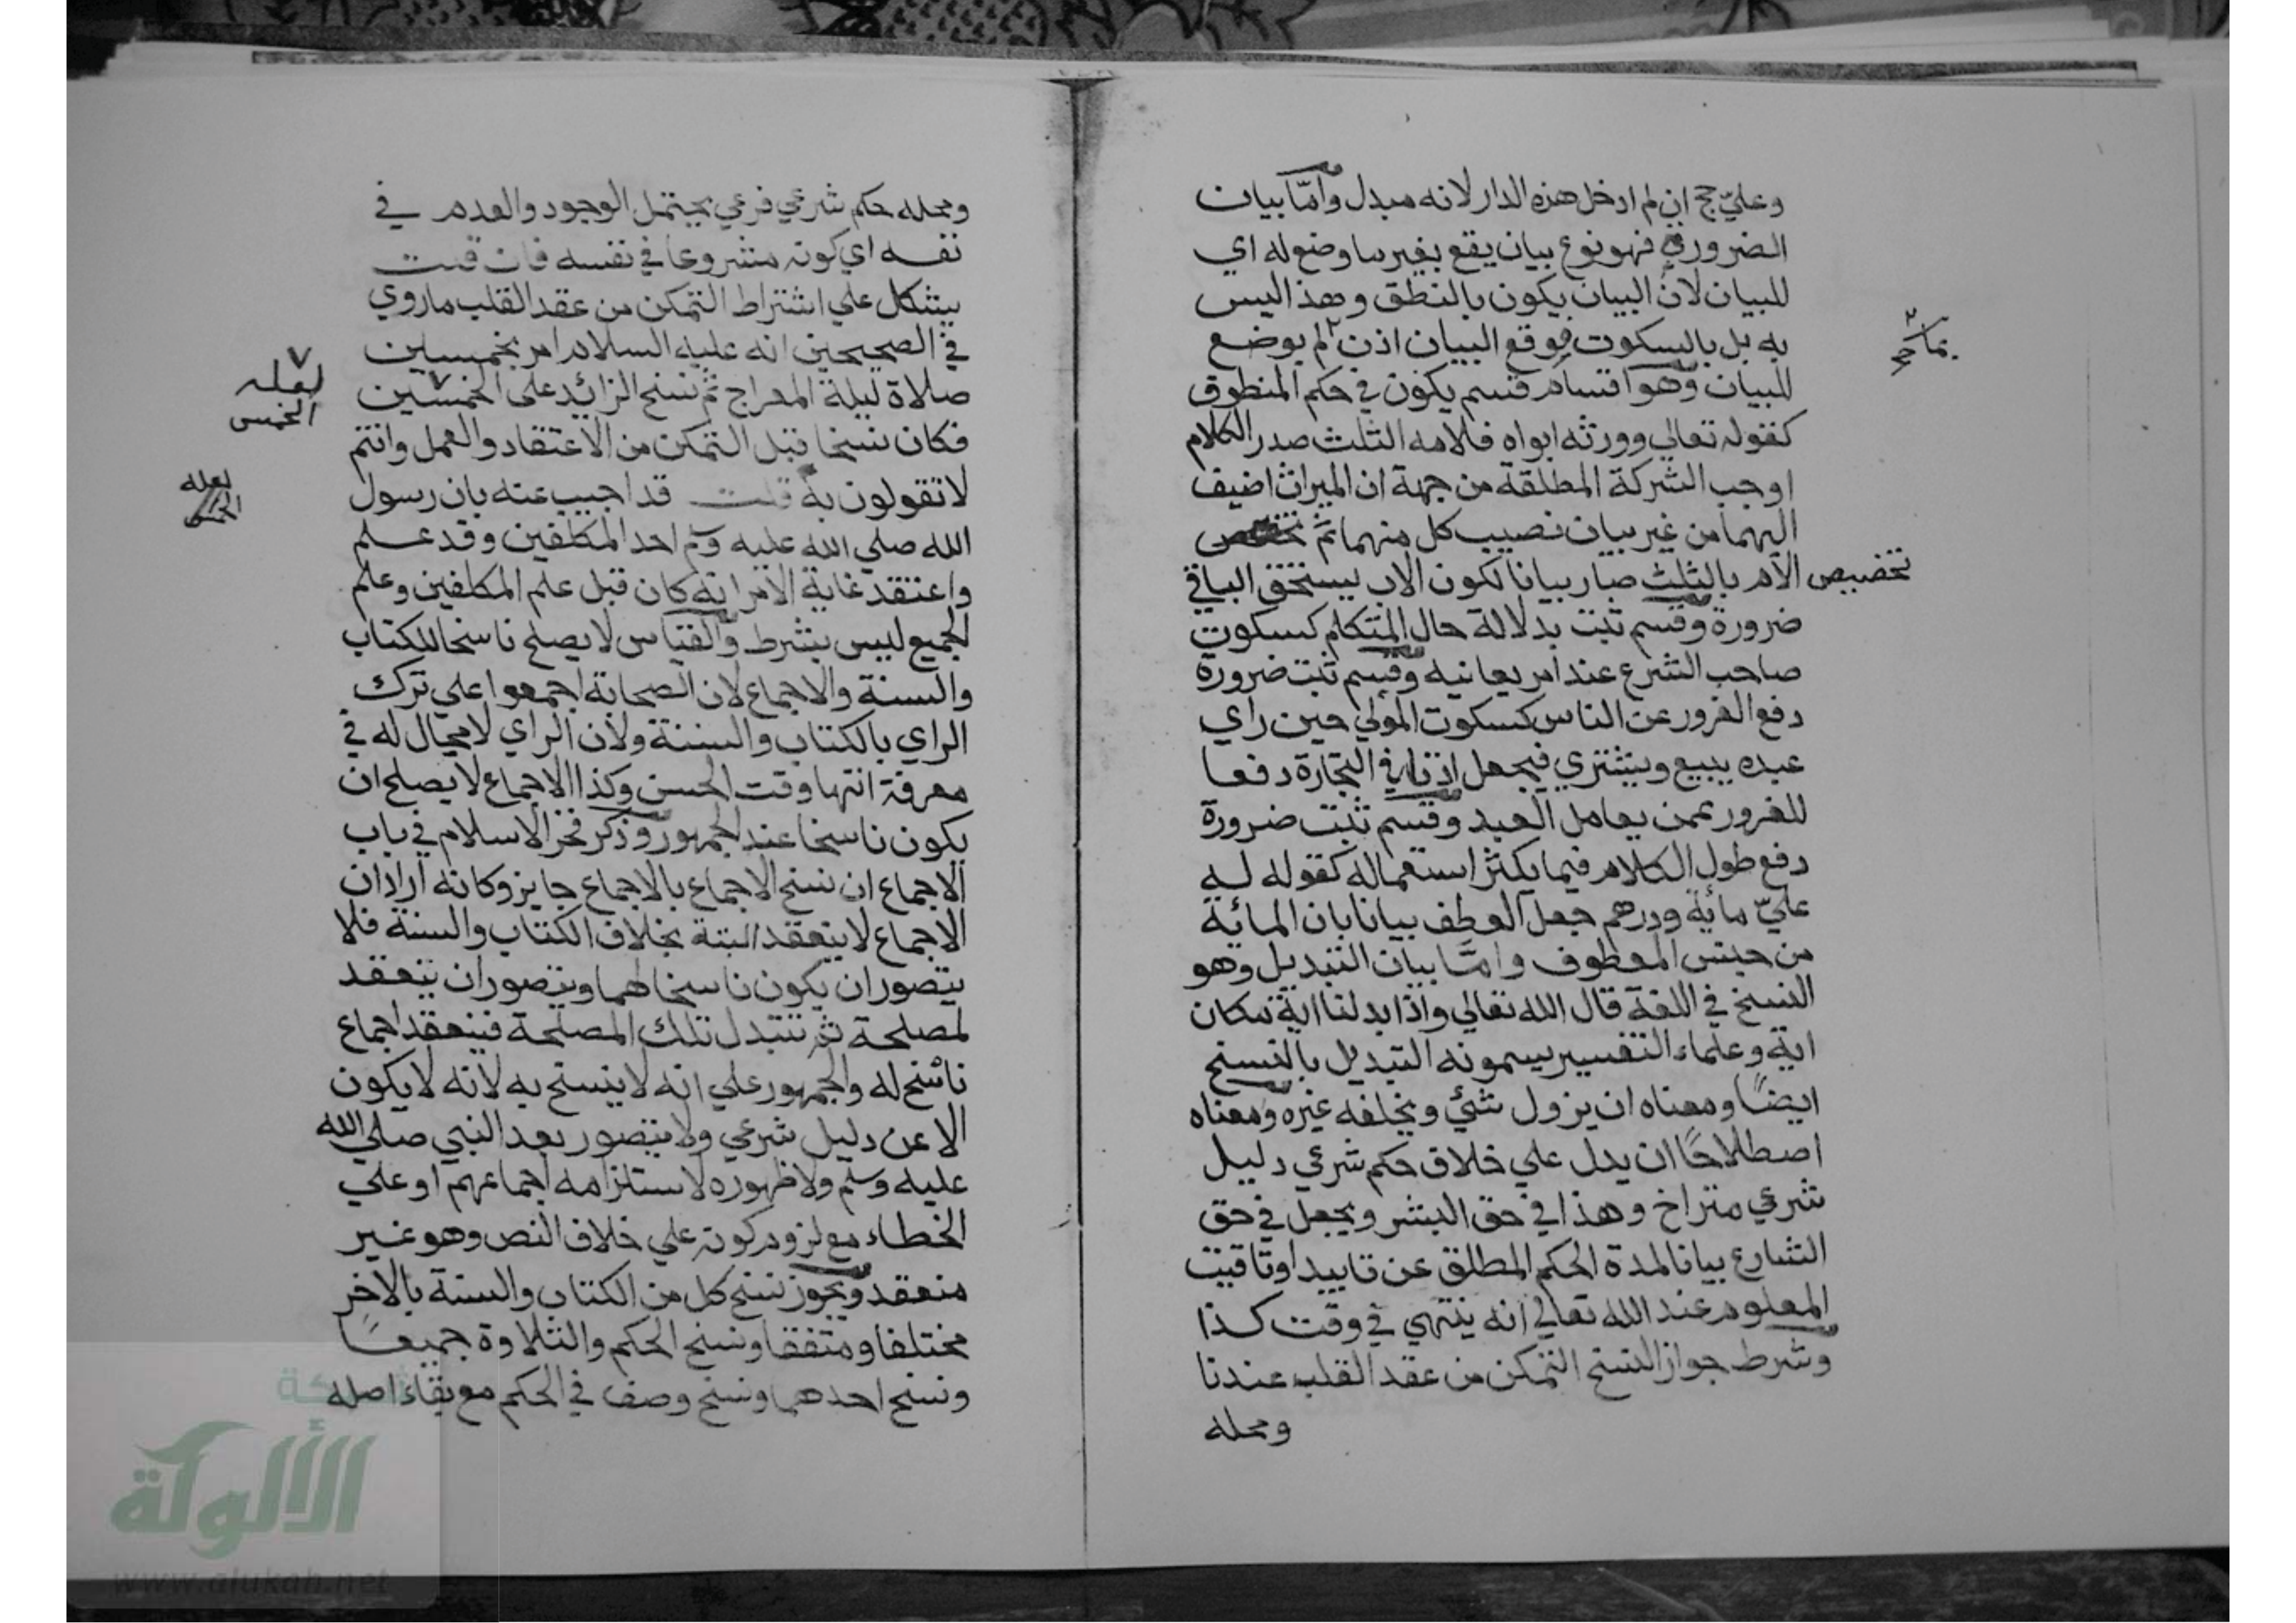 وعليّ حج ان لم ادخل هذه الدار لانه مبدل وامّا بيان
الضرورة فهو نوع بيان يقع بغير ما وضع له اي
للبيان لان البيان يكون بالنطق وهذا ليس
به بل بالسكوت فوقع البيان اذن لم يوضع
بما صح
للبيان وهو اقسام قسم يكون في حكم المنطوق
كقوله تعالي وورثه ابواه فلامه الثلث صدر الكلام
اوجب الشركة المطلقة من جهة ان الميراث اضيف
اليهما من غير بيان نصيب كل منهما ثم
تخصيص الام بالثلث صار بيانا لكون الاب يستحق الباقي
ضرورة وقسم ثبت بدلالة حال المتكلم كسكوت
صاحب الشرع عند امر يعانيه وقسم ثبت ضرورة
دفع الغرور عن الناس كسكوت المولي حين راي
عبده يبيع ويشتري فيجعل اذنا في التجارة دفعا
للغرور عمن يعامل العبد وقسم ثبت ضرورة
دفع طول الكلام فيما يكثر استعماله كقوله له
عليّ مائة ودرهم جعل العطف بيانا بان المائة
من جنس المعطوف وامّا بيان التبديل وهو
النسخ في اللغة قال الله تعالي واذا بدلنا اية مكان
اية وعلماء التفسير يسمونه التبديل بالنسخ
ايضًا ومعناه ان يزول شئ ويخلفه غيره ومعناه
اصطلاحًا ان يدل علي خلاف حكم شرعي دليل
شرعي متراخ وهذا في حق البشر ويجعل في حق
الشارع بيانا لمدة الحكم المطلق عن تاييد او تاقيت
المعلوم عند الله تعالي انه ينتهي في وقت كذا
وشرط جواز النسخ التمكن من عقد القلب عندنا
ومحله
ومحله حكم شرعي فرعي يحتمل الوجود والعدم في
نفسه اي كونه مشروعا في نفسه فان قلت
يشكل علي اشتراط التمكن من عقد القلب ما روي
في الصحيحين انه عليه السلام امر بخمسين
صلاة ليلة المعراج ثم نسخ الزائد على الخمسين
لعله
الخمس
فكان نسخا قبل التمكن من الاعتقاد والعمل وانتم
لا تقولون به قلت قد اجيب عنه بان رسول
لعله
الخمس
الله صلي الله عليه وسلم احد المكلفين وقد علم
واعتقد غاية الامر انه كان قبل علم المكلفين وعلم
الجميع ليس بشرط والقياس لا يصلح ناسخا للكتاب
والسنة والاجماع لان الصحابة اجمعوا علي ترك
الراي بالكتاب والسنة ولان الراي لا مجال له في
معرفة انتها وقت الحسن وكذا الاجماع لا يصلح ان
يكون ناسخا عند الجمهور وذكر فخر الاسلام في باب
الاجماع ان نسخ الاجماع بالاجماع جايز وكانه اراد ان
الاجماع لا ينعقد البتة بخلاف الكتاب والسنة فلا
يتصور ان يكون ناسخا لهما ويتصور ان ينعقد
لمصلحة ثم تتبدل تلك المصلحة فينعقد اجماع
ناسخ له والجمهور علي انه لا ينسخ به لانه لا يكون
الا عن دليل شرعي ولا يتصور بعد النبي صلي الله
عليه وسلم ولا ظهوره لاستلزامه اجماعهم او علي
الخطاء مع لزوم كونه علي خلاف النص وهو غير
منعقد ويجوز نسخ كل من الكتاب والسنة بالاخر
مختلفا ومتفقا ونسخ الحكم والتلاوة جميعًا
ونسخ احدهما ونسخ وصف في الحكم مع بقاء اصله
الألوكة
www.alukah.net